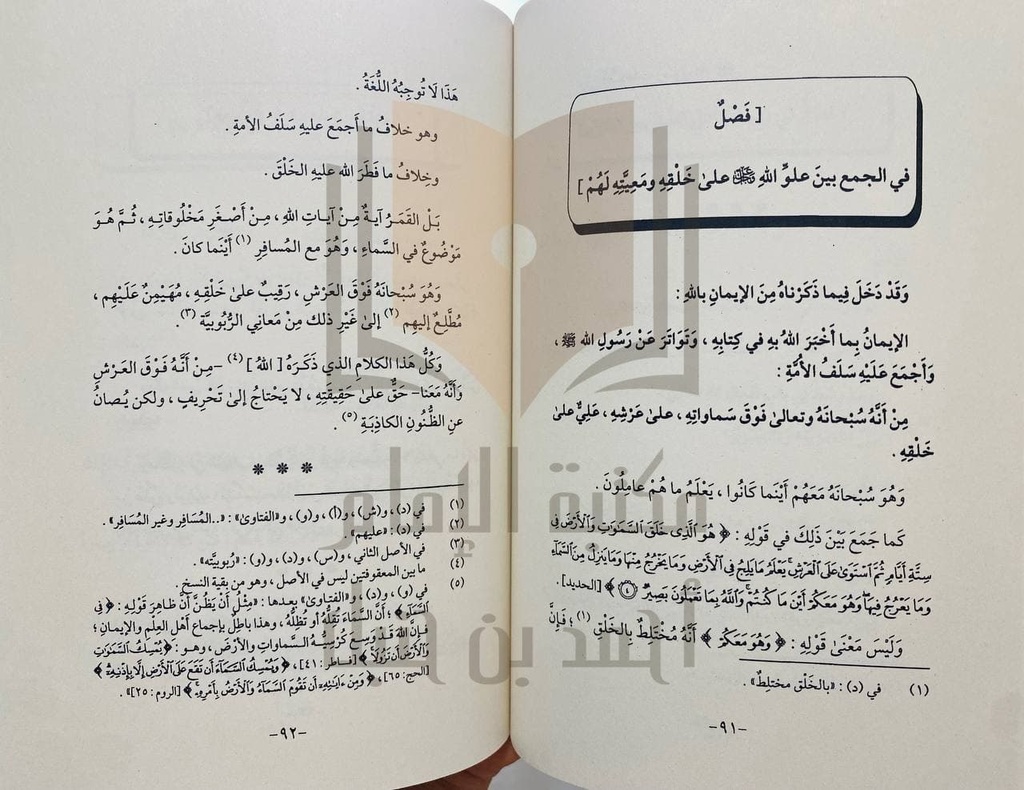 [ فَصْلٌ
في الجمع بينَ علوِّ اللهِ ﷻ علىٰ خَلْقِهِ ومَعِيَّتِهِ لَهُمْ ]
وَقَدْ دَخَلَ فِيما ذَكَرْناهُ مِنَ الإيمانِ باللهِ :
الإيمانُ بِما أَخْبَرَ اللهُ بِهِ في كِتابِهِ ، وَتَواتَرَ عَنْ رَسُولِ اللهِ ﷺ ،
وَأَجْمَعَ عَلَيْهِ سَلَفُ الأُمَّةِ :
مِنْ أَنَّهُ سُبْحانَهُ وتعالىٰ فَوْقَ سَماواتِهِ ، علىٰ عَرْشِهِ ، عَلِيٌّ علىٰ
خَلْقِهِ .
وَهُوَ سُبْحانَهُ مَعَهُمْ أَيْنَما كَانُوا ، يَعْلَمُ ما هُمْ عامِلُونَ .
كَما جَمَعَ بَيْنَ ذلِكَ في قَوْلِهِ : ﴿ هُوَ ٱلَّذِى خَلَقَ ٱلسَّمَٰوَٰتِ وَٱلْأَرْضَ فِى
سِتَّةِ أَيَّامٍ ثُمَّ ٱسْتَوَىٰ عَلَى ٱلْعَرْشِ يَعْلَمُ مَا يَلِجُ فِى ٱلْأَرْضِ وَمَا يَخْرُجُ مِنْهَا وَمَا يَنزِلُ مِنَ ٱلسَّمَآءِ
وَمَا يَعْرُجُ فِيهَا وَهُوَ مَعَكُمْ أَيْنَ مَا كُنتُمْ وَٱللَّهُ بِمَا تَعْمَلُونَ بَصِيرٌ ٤ ﴾ [الحديد].
وَلَيْسَ مَعْنَىٰ قَوْلِهِ : ﴿ وَهُوَ مَعَكُمْ ﴾ أَنَّهُ مُخْتَلِطٌ بِالخَلْقِ (١) ؛ فَإِنَّ
(١) في (د) : «بالخَلْق مختلِطٌ» .
-٩١-
هَذَا لَا تُوجِبُهُ اللُّغَةُ .
وهو خلافُ ما أَجمَعَ عليهِ سَلَفُ الأمةِ .
وخِلافُ ما فَطَرَ الله عليهِ الخَلْقَ .
بَلْ القَمَرُ آيةٌ مِنْ آيـاتِ اللهِ ، مِـنْ أَصْغَرِ مَخْلُوقاتِـهِ ، ثُـمَّ هُـوَ
مَوْضُوعٌ في السَّماءِ ، وَهُوَ مع المُسافِرِ (١) أَيْنَما كانَ .
وَهُوَ سُبْحانَهُ فَوْقَ العَرْشِ ، رَقِيبٌ علىٰ خَلْقِهِ ، مُهَيْمِنٌ عَلَيْهِم ،
مُطَّلِعٌ إليهِم (٢) إلىٰ غَيْرِ ذلك مِنْ مَعانِي الرُّبُوبيَّة (٣).
وَكُلُّ هَذا الكلامِ الذي ذَكَرَهُ [ اللهُ ] (٤) -مِنْ أَنَّهُ فَوْقَ العَرْشِ
وَأَنَّهُ مَعَنا- حَقٌّ علىٰ حَقِيقَتِهِ ، لا يَحْتاجُ إلىٰ تَحْرِيفٍ ، ولكن يُصانُ
عنِ الظُّنُونِ الكاذِبَةِ (٥) .
* * *
(١) في (د)، و(ش)، و(أ)، و(و)، و«الفتاوىٰ»: «..المُسافِر وغير المُسافِر».
(٢) في (د): «عليهم».
(٣) في الأصل الثاني، و(س)، و(د)، و(و): «رُبوبيته».
(٤) ما بين المعقوفتين ليس في الأصل، وهو من بقية النسخ.
(٥) في (و)، و(د)، و«الفتاوىٰ» بعدها: «مِثْلُ أَنْ يَظُنَّ أَنَّ ظاهِرَ قَوْلِـهِ : ﴿ فِى
ٱلسَّمَآءِ ﴾؛ أَنَّ السَّماءَ تُقِلُّهُ أو تُظِلُّهُ، وهذا باطِلٌ بإجماع أهل العِلْمِ والإيمانِ؛
فـإنَّ اللهَ قـد وَسِـعَ كُرْسِيُّـهُ السَّماواتِ والأَرْضَ، وهـو: ﴿ يُمْسِكُ ٱلسَّمَٰوَٰتِ
وَٱلْأَرْضَ أَن تَزُولَا ﴾ [فـاطر: ٤١]، ﴿ وَيُمْسِكُ ٱلسَّمَآءَ أَن تَقَعَ عَلَى ٱلْأَرْضِ إِلَّا بِإِذْنِهِۦ ﴾
[الحج: ٦٥]، ﴿ وَمِنْ ءَايَٰتِهِۦٓ أَن تَقُومَ ٱلسَّمَآءُ وَٱلْأَرْضُ بِأَمْرِهِۦ ﴾ [الروم: ٢٥]».
-٩٢-
مكتبة الإمام
أحمد بن حنبل